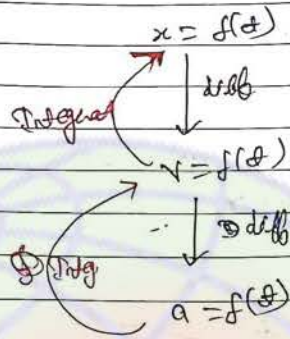 x = f(t)
diff
Integrat
v = f(t)
diff
Intg
a = f(t)